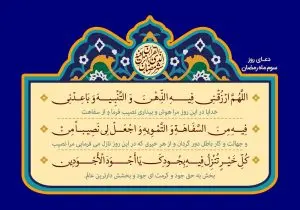 دعای روز
سوم ماه رمضان
اللهُمَّ ارْزُقْنی فیهِ الذِّهْنَ وَ التَّنْبیهَ وَ باعِدْنی
خدایا در این روز مرا هوش و بیداری نصیب فرما و از سفاهت
فیهِ مِنَ السَّفاهَةِ وَ التَّمْویهِ وَ اجْعَلْ لی نَصیباً مِنْ
و جهالت و کار باطل دور گردان و از هر خیری که در این روز نازل می فرمایی مرا نصیب
کُلِّ خَیْرٍ تُنْزِلُ فیهِ بِجودِکَ یا اَجْوَدَ الْاَجْوَدینَ
بخش به حق جود و کرمت ای جود و بخشش دارترین عالم.